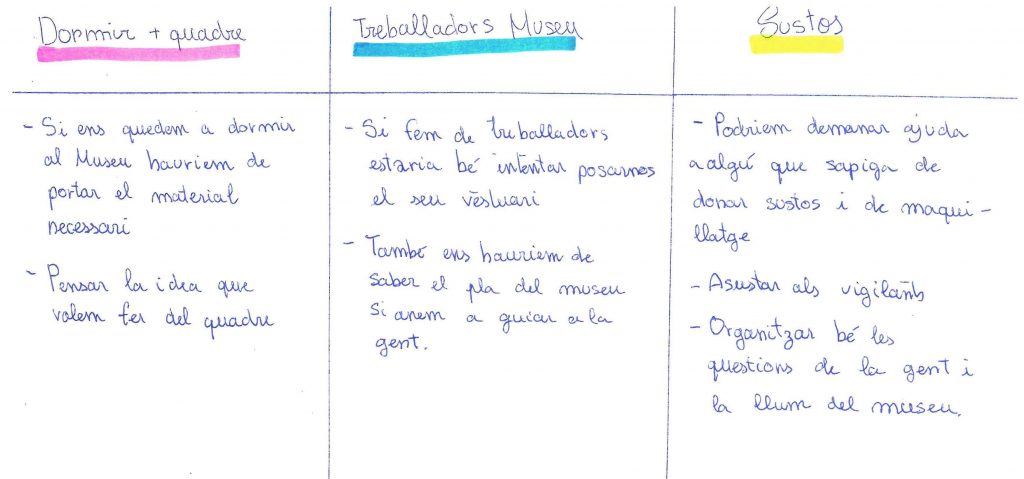 Dormir + quadre
- Si ens quedem a dormir
al Museu hauriem de
portar el material
necessari
- Pensar la idea que
volem fer del quadre
Treballadors Museu
- Si fem de treballadors
estaria bé intentar posarnos
el seu vestuari
- També ens hauriem de
saber el pla del museu
si anem a guiar a la
gent.
Sustos
- Podriem demanar ajuda
a algú que sapiga de
donar sustos i de maqui-
llatge
- Asustar als vigilants
- Organitzar bé les
questions de la gent i
la llum del museu.